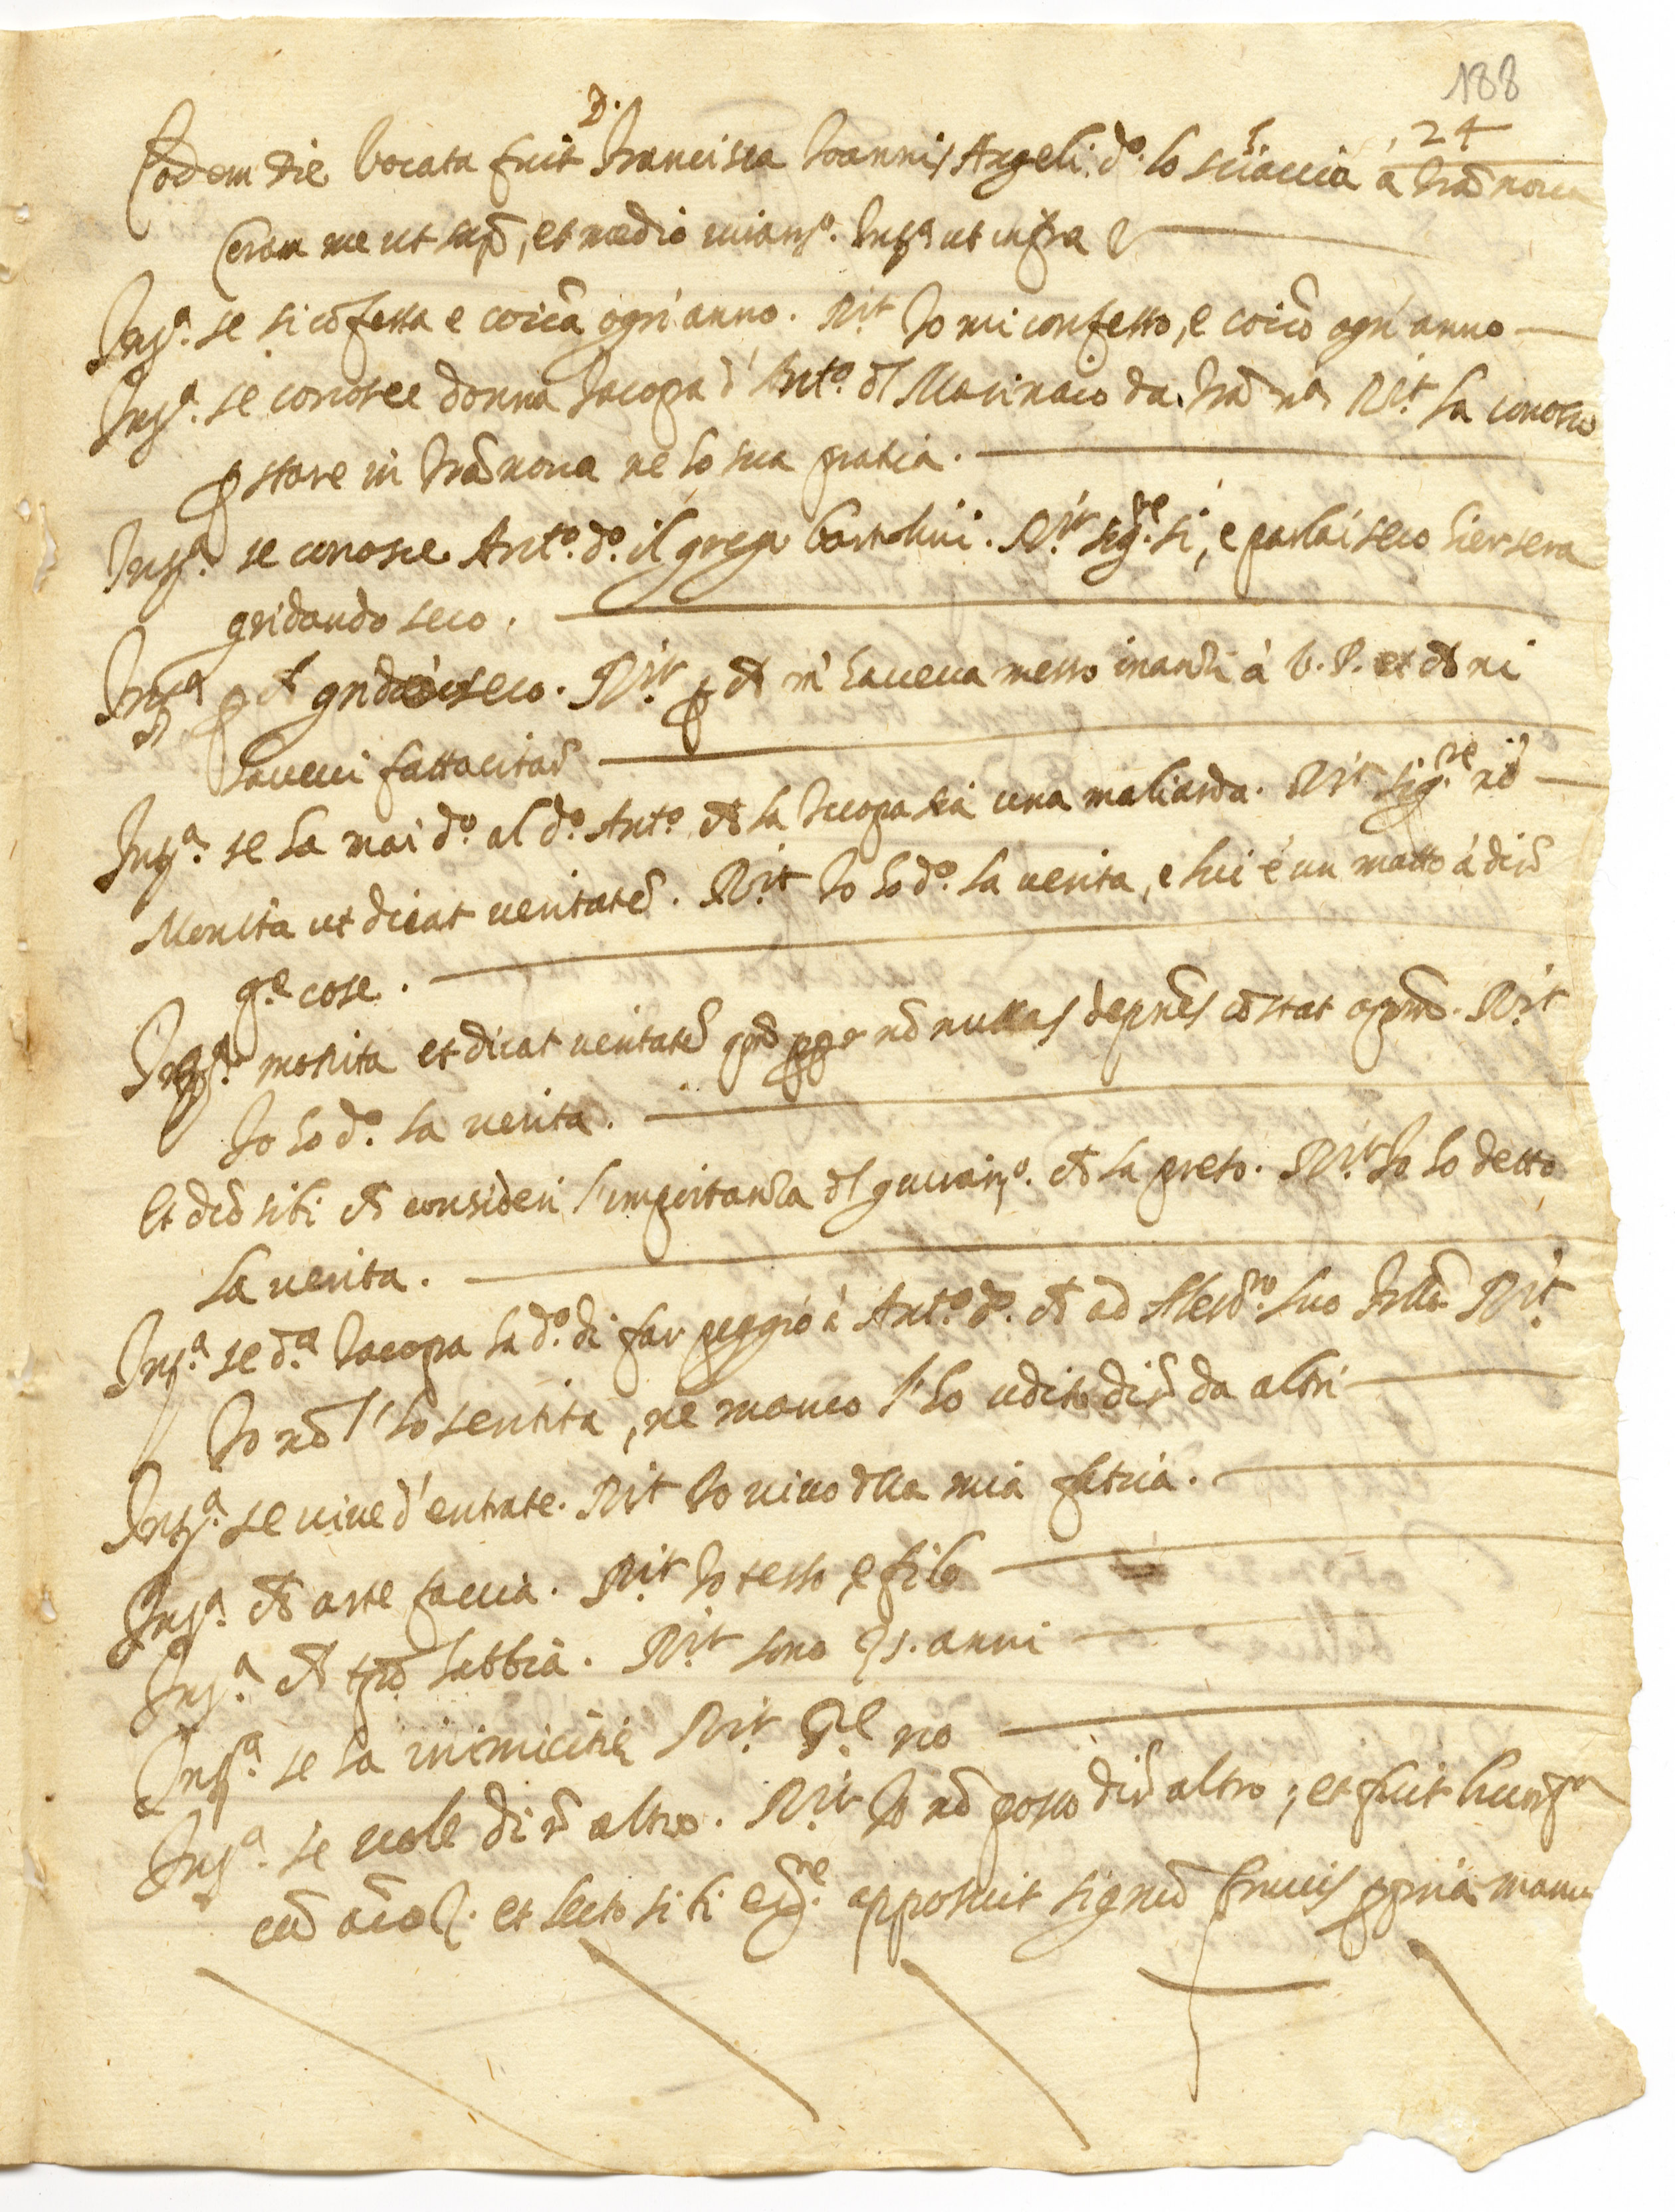 188
24
Eodem die vocata fuit D. Francisca Joannis Angeli d.º lo sciaccia à Tr̃a nova
Coram me ut sup̃, et medio iuram.º Int.ª ut infra
Int.ª se si cõfessa e coĩca ogn'anno. R.it Io mi confesso, e coĩco ogn'anno
Int.ª se conosce donna Jacopa d'Ant.º dl Marinaro da Tr̃a n.ª R.it La conosco
ꝑ stare in Tr̃anova ne ho sua pratica.
Int.ª se conosce Ant.º d.º il grego bartolini. R.it sig.re si, e parlai seco hiersera
gridando seco.
Int.ª ꝑ ch̃ gridò seco. R.it ꝑ ch̃ m'haveva messo inanzi à V. P. et ch̃ mi
havevi fatta citar̃
Int.ª se ha mai d.º al d.º Ant.º ch̃ la Jacopa sia una maliarda. R.it sig.re nõ
Monita ut dicat veritatẽ. R.it Io ho d.º la verita, e lui é un matto à dir̃
q.te cose.
Int.ª monita et dicat veritatẽ nõ nullas constat R.it
Io ho d.º la verita.
Et dc̃õ sibi ch̃ consideri l'importanza dl giuram.º ch̃ ha preso. R.it Io ho detto
la verita.
Int.ª se d.ª Jacopa ha d.º di far peggio à Ant.º d.º ch̃ ad Aless.ro suo R.it
Io nõ l'ho sentita, ne manco l'ho udito dir̃ da altri
Int.ª se vive d'entrate. R.it Io vivo dlla mia fatica.
Int.ª ch̃ arte faccia. R.it Io tesso, e filo
Int.ª ch̃ tp̃o habbia. R.it sono anni
Int.ª se ha inimicitie R.it S.re no
Int.ª se vole dir̃ altro. R.it Io nõ posso dir̃ altro; et fuit
cũ et lecto sibi appostuit signũ Crucis ꝓpria manu